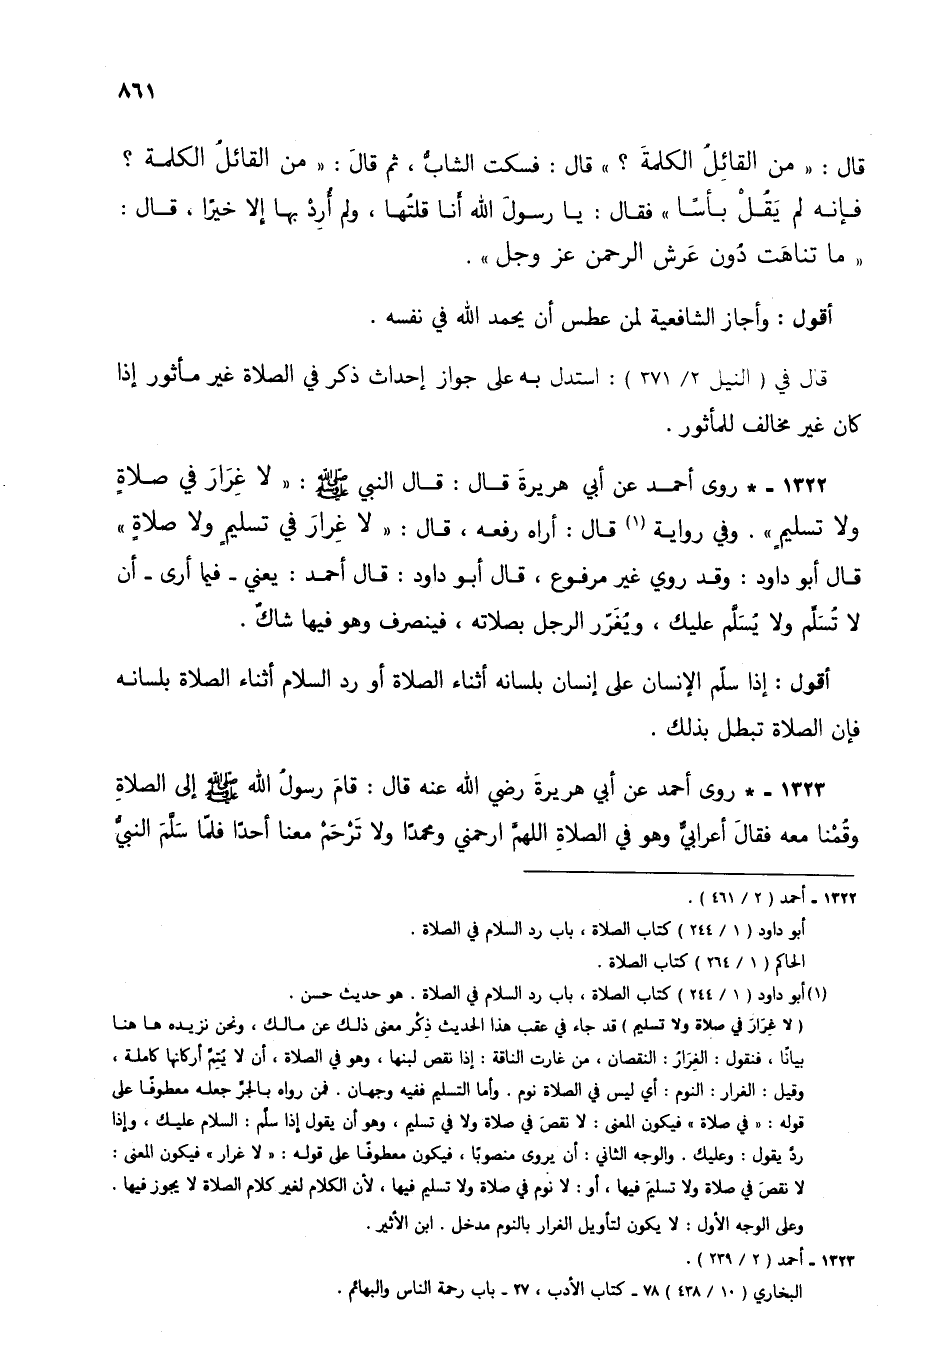 ٨٦١
قال : « من القائلُ الكلمةَ ؟ » قال : فسكت الشابُّ ، ثم قالَ : « من القائلُ الكلمة ؟
فإنه لم يَقُلْ بأسًا » فقال : يا رسولَ الله أنا قلتُها ، ولم أُرِدْ بها إلا خيرًا ، قال :
« ما تناهَت دُون عَرش الرحمن عز وجل » .
أقول : وأجاز الشافعية لمن عطس أن يحمد الله في نفسه .
قال في ( النيل ٢/ ٣٧١ ) : استدل به على جواز إحداث ذكر في الصلاة غير مأثور إذا
كان غير مخالف للمأثور .
١٣٢٢ - * روى أحمد عن أبي هريرةَ قال : قال النبي ﷺ : « لا غِرَارَ في صلاةٍ
ولا تسليمٍ » . وفي رواية (١) قال : أراه رفعه ، قال : « لا غِرارَ في تسليمٍ ولا صلاةٍ »
قال أبو داود : وقد روي غير مرفوع ، قال أبو داود : قال أحمد : يعني - فيما أرى - أن
لا تُسَلِّم ولا يُسَلَّم عليك ، ويُغَرّر الرجل بصلاته ، فينصرف وهو فيها شاكٌ .
أقول : إذا سلّم الإنسان على إنسان بلسانه أثناء الصلاة أو رد السلام أثناء الصلاة بلسانه
فإن الصلاة تبطل بذلك .
١٣٢٣ - * روى أحمد عن أبي هريرةَ رضي الله عنه قال : قامَ رسولُ الله ﷺ إلى الصلاةِ
وقُمْنا معه فقالَ أعرابيٌّ وهو في الصلاةِ اللهمَّ ارحمني ومحمدًا ولا تَرْحَمْ معنا أحدًا فلمّا سَلَّمَ النبيُّ
١٣٢٢ - أحمد ( ٢ / ٤٦١ ) .
أبو داود ( ١ / ٢٤٤ ) كتاب الصلاة ، باب رد السلام في الصلاة .
الحاكم ( ١ / ٢٦٤ ) كتاب الصلاة .
(١) أبو داود ( ١ / ٢٤٤ ) كتاب الصلاة ، باب رد السلام في الصلاة . هو حديث حسن .
( لا غِرَارَ في صلاة ولا تسليم ) قد جاء في عقب هذا الحديث ذِكْر معنى ذلك عن مالك ، ونحن نزيده ها هنا
بيانًا ، فنقول : الغِرَارُ : النقصان ، من غارت الناقة : إذا نقص لبنها ، وهو في الصلاة ، أن لا يُتِمَّ أركانها كاملة ،
وقيل : الغرار : النوم : أي ليس في الصلاة نوم . وأما التسليم ففيه وجهان . فمن رواه بالجرِّ جعله معطوفًا على
قوله : « في صلاة » فيكون المعنى : لا نقصَ في صلاة ولا في تسليم ، وهو أن يقول إذا سلّم : السلام عليك ، وإذا
ردَّ يقول : وعليك . والوجه الثاني : أن يروى منصوبًا ، فيكون معطوفًا على قوله : « لا غرار » فيكون المعنى :
لا نقصَ في صلاة ولا تسليمَ فيها ، أو : لا نوم في صلاة ولا تسليم فيها ، لأن الكلام لغير كلام الصلاة لا يجوز فيها .
وعلى الوجه الأول : لا يكون لتأويل الغرار بالنوم مدخل . ابن الأثير .
١٣٢٣ - أحمد ( ٢ / ٢٣٩ ) .
البخاري ( ١٠ / ٤٣٨ ) ٧٨ - كتاب الأدب ، ٢٧ - باب رحمة الناس والبهائم .